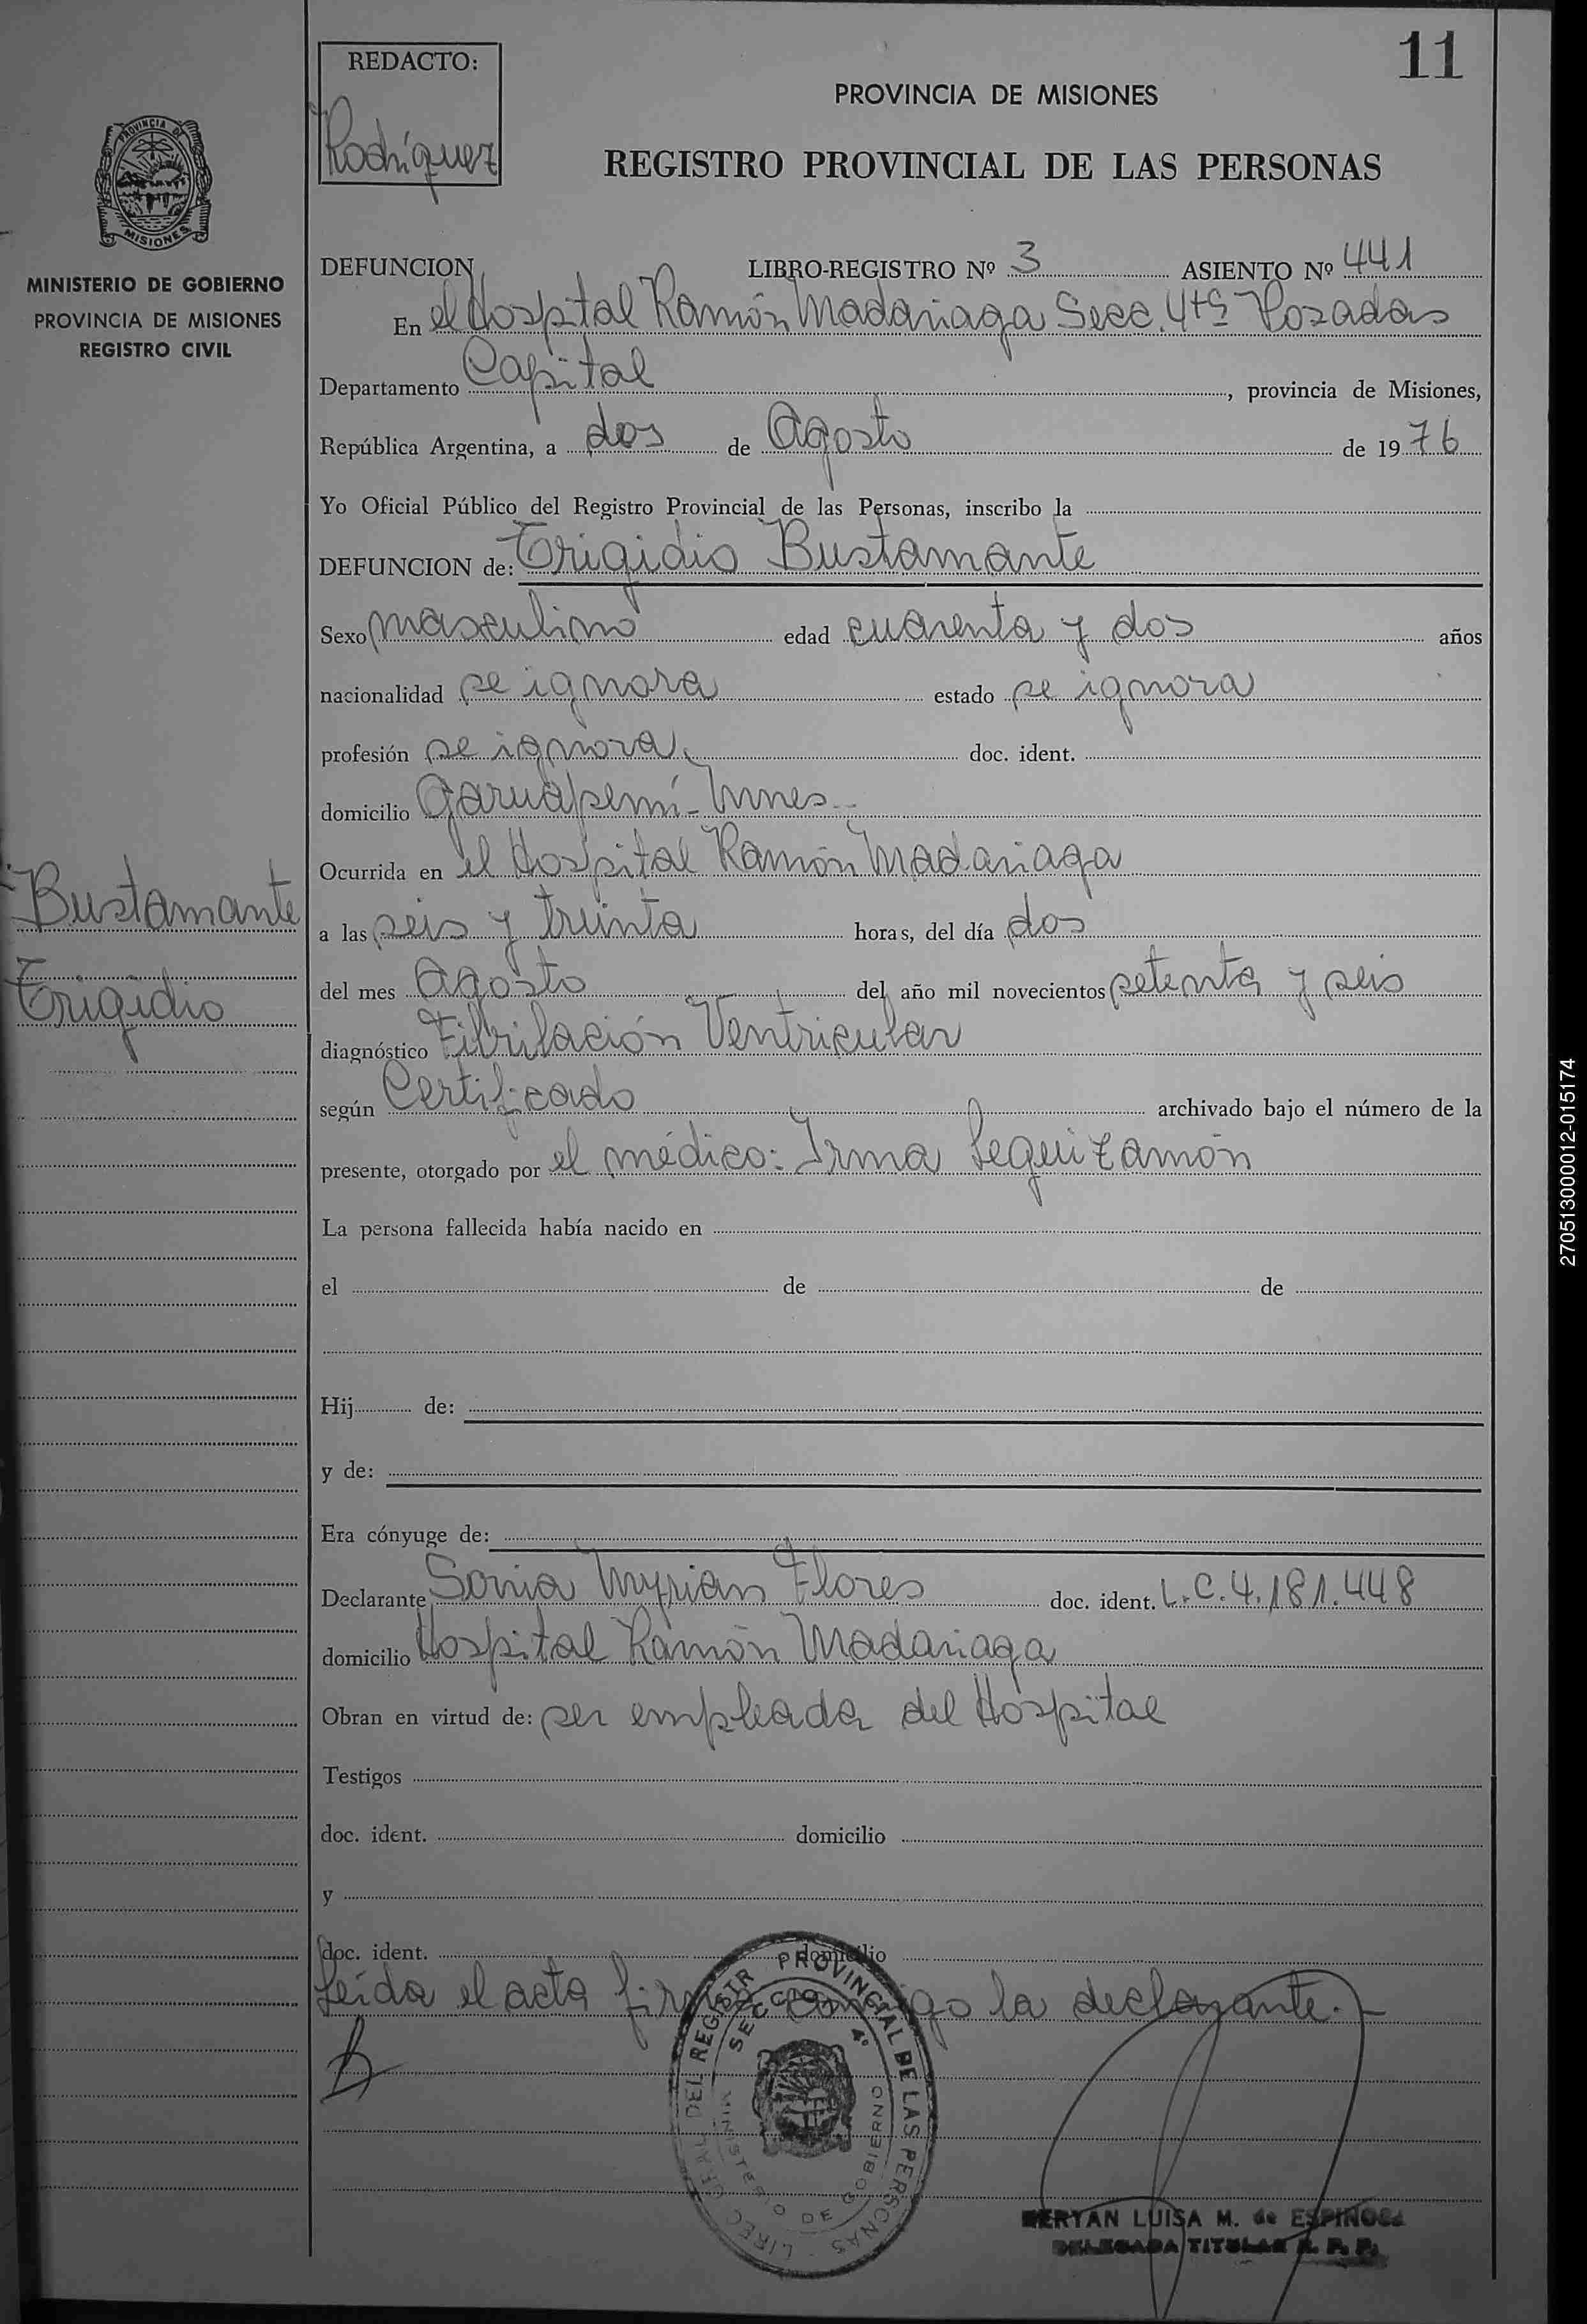 11
REDACTO:
Rodríguez
PROVINCIA DE MISIONES
REGISTRO PROVINCIAL DE LAS PERSONAS
PROVINCIA DE
MISIONES
MINISTERIO DE GOBIERNO
PROVINCIA DE MISIONES
REGISTRO CIVIL
DEFUNCION LIBRO-REGISTRO Nº 3 ASIENTO Nº 441
En el Hospital Ramón Madariaga Secc. 4ta Posadas
Departamento Capital, provincia de Misiones,
República Argentina, a dos de Agosto de 1976
Yo Oficial Público del Registro Provincial de las Personas, inscribo la
DEFUNCION de: Frigidio Bustamante
Sexo masculino edad cuarenta y dos años
nacionalidad se ignora estado se ignora
profesión se ignora. doc. ident.
domicilio Garuapemí-Mnes
Ocurrida en el Hospital Ramón Madariaga
Bustamante
Frigidio
a las seis y treinta horas, del día dos
del mes Agosto del año mil novecientos setenta y seis
diagnóstico Fibrilación Ventricular
según Certificado archivado bajo el número de la
presente, otorgado por el médico: Irma Leguizamón
La persona fallecida había nacido en
el de de
Hij de:
y de:
Era cónyuge de:
Declarante Sonia Myrian Flores doc. ident. L.C. 4.181.448
domicilio Hospital Ramón Madariaga
Obran en virtud de: ser empleada del Hospital
Testigos
doc. ident. domicilio
y
doc. ident. domicilio
Leída el acta firma conmigo la declarante.-
PROVINCIAL DE LAS PERSONAS
DEL REGISTR
SECCION 4º
MINISTERIO DE GOBIERNO
LUISA M. de ESPINOSA
DELEGADA TITULAR R. P. P.
2705130000012-015174